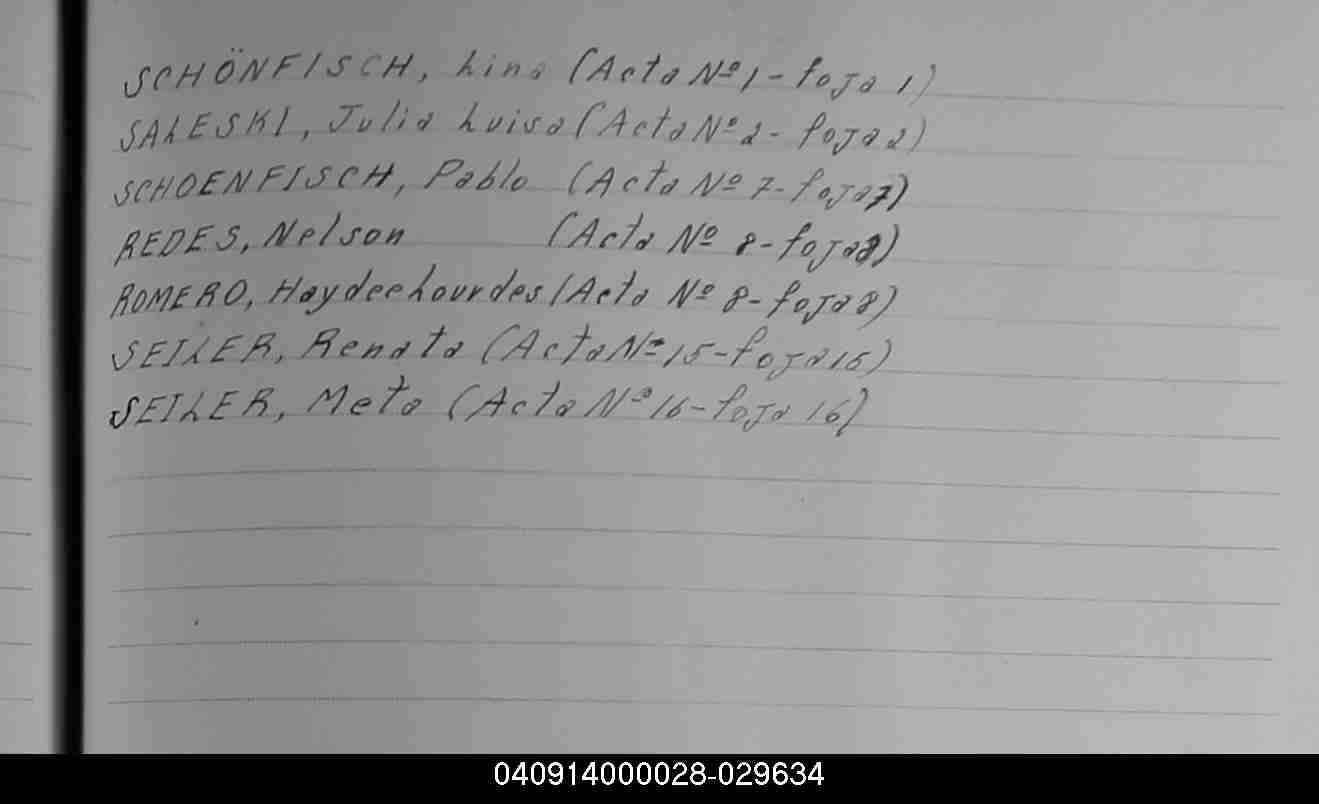 SCHÖNFISCH, Lina (Acta Nº 1 - foja 1)
SALESKI, Julia Luisa (Acta Nº 2 - foja 2)
SCHOENFISCH, Pablo (Acta Nº 7 - foja 7)
REDES, Nelson (Acta Nº 8 - foja 8)
ROMERO, Haydee Lourdes (Acta Nº 8 - foja 8)
SEILER, Renata (Acta Nº 15 - foja 15)
SEILER, Meta (Acta Nº 16 - foja 16)
040914000028-029634